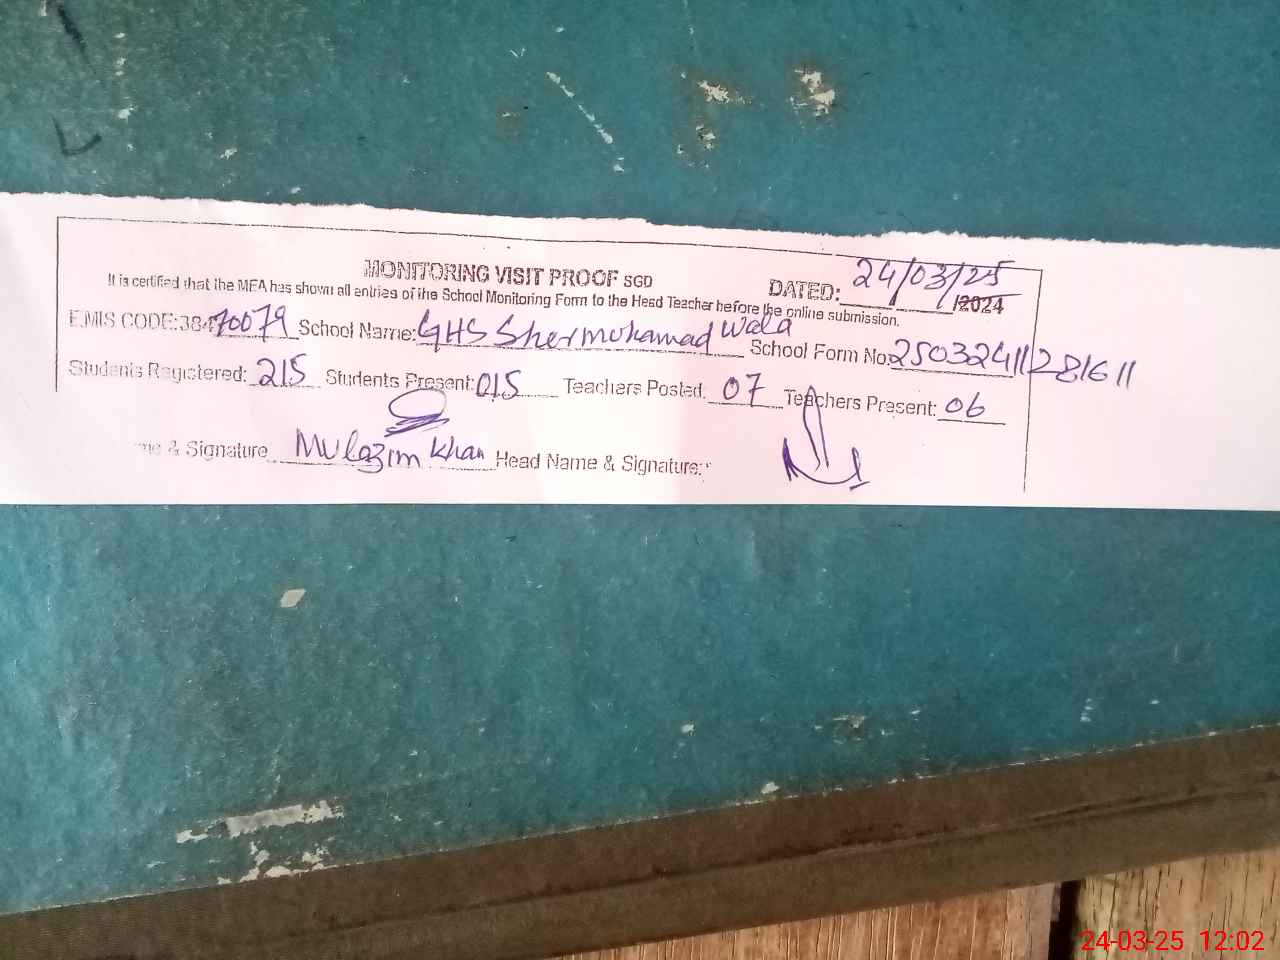 MONITORING VISIT PROOF SGD
DATED: 24/03/25 /2024
It is certified that the MEA has shown all entries of the School Monitoring Form to the Head Teacher before the online submission.
EMIS CODE:38470079 School Name: GHS Shermohamad Wala School Form No 25032411281611
Students Registered: 215 Students Present: 015 Teachers Posted: 07 Teachers Present: 06
& Signature Mulazim Khan Head Name & Signature:
24-03-25 12:02